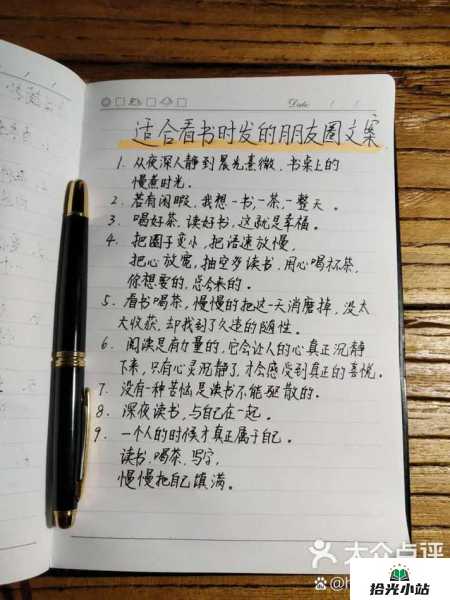 Date
适合看书时发的朋友圈文案
1. 从夜深人静到晨光熹微,书桌上的
慢煮时光。
2. 若有闲暇,我想一书,一茶,一整天。
3. 喝好茶,读好书,这就是幸福。
4. 把圈子变小,把语速放慢,
把心放宽,抽空多读书,用心喝杯茶,
你想要的,总会来的。
5. 看书喝茶,慢慢的把这一天消磨掉,没太
大收获,却找到了久违的随性。
6. 阅读是有力量的,它会让人的心真正沉静
下来,只有心灵沉静了,才会感受到真正的喜悦。
7. 没有一种苦恼是读书不能驱散的。
8. 深夜读书,与自己在一起。
9. 一个人的时候才真正属于自己。
读书,喝茶,写字,
慢慢把自己填满。
大众点评
拾光小站